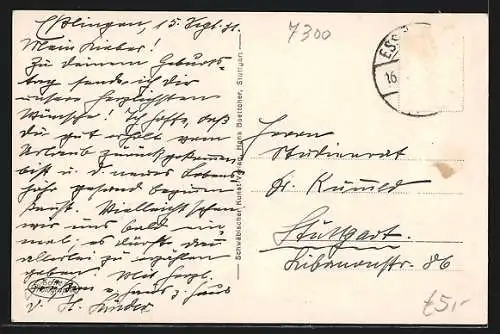 Esslingen, 15. Sept. 31.
Mein Lieber!
Zu deinem Geburts-
tag sende ich dir
unsere herzlichsten
Wünsche! Ich hoffe, daß
du gut erholt vom
Urlaub zurückgekommen
bist u. d. neues Lebens-
jahr gesund beginnen
Vielleicht sehen
wir uns bald ein-
mal, es dürfte dann
allerlei zu erzählen
geben. Mit herzl.
v. Haus z. Haus
Schwäbischer Kunst-Verlag, Hans Boettcher, Stuttgart
7300
ESS
16
Herrn
Studienrat
Dr. Kummel
Stuttgart.
86
£5,-